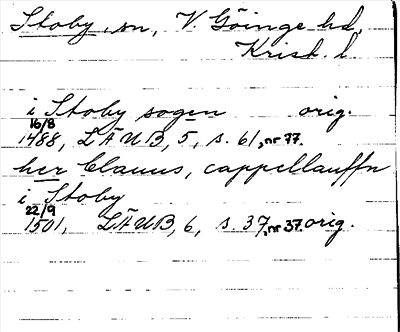 Stoby, sn, V. Göinge hd,
Krist. l.
i Stoby sogen orig.
16/8
1488, LÄUB, 5, s. 61, nr 77.
her Clauus, cappellauffn
i Stoby
22/9
1501, LÄUB, 6, s. 37, nr 37. orig.